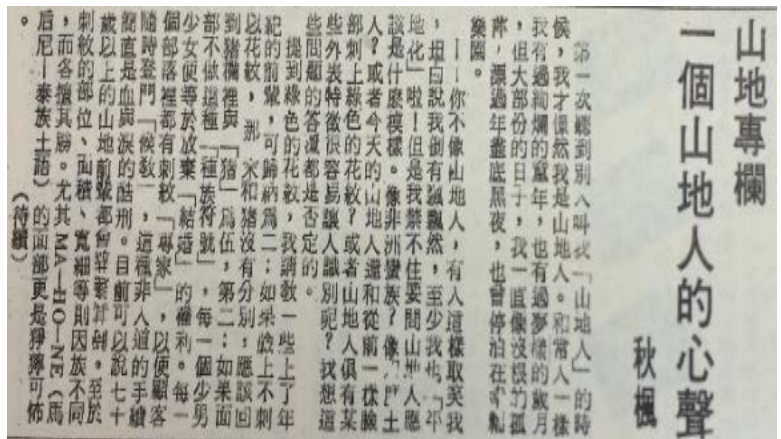 山地專欄
一個山地人的心聲
秋楓
第一次聽到別人叫我「山地人」的時
候,我才恍然我是山地人。和常人一樣
我有過絢爛的童年,也有過夢樣的歲月
,但大部份的日子,我一直像沒根的孤
萍,漂過年盡底黑夜,也曾停泊在
樂園。
——你不像山地人,有人這樣取笑我
,坦白說我倒有點飄然,至少我也「平
地化」啦!但是我禁不住要問山地人應
該是什麼模樣。像非洲蠻族?像 土
人?或者今天的山地人還和從前一樣臉
部刺上綠色的花紋?或者山地人俱有某
些外表特徵很容易讓人識別呢?我想這
些問題的答覆都是否定的。
提到綠色的花紋,我請教一些上了年
紀的前輩,可歸納為二:如果臉上不刺
以花紋,那 和猪沒有分別,應該回
到猪欄裡與「猪」為伍,第二:如果面
部不做這種「種族符號」,每一個少男
少女便等於放棄「結婚」的權利。每一
個部落裡都有刺紋「專家」,以便顧客
隨時登門「候教」,這種非人道的手續
簡直是血與淚的酷刑。目前可以說七十
歲以上的山地前輩都 ,至於
刺紋的部位、面積、寬細等則因族不同
,而各擅其勝。尤其MA—HO—NE(馬
后尼—泰族土語)的面部更是猙獰可怖
。 (待續)